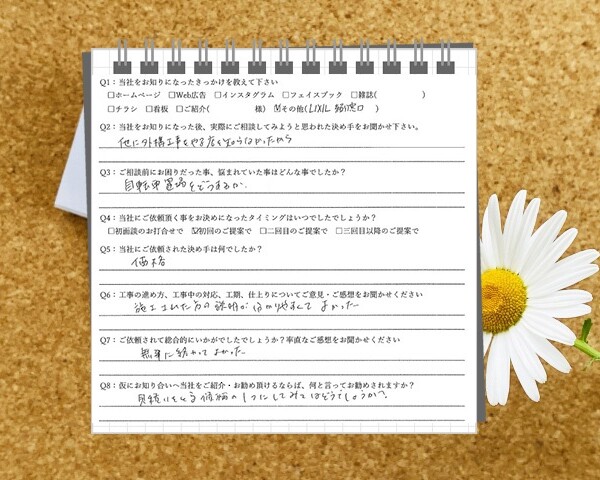 Q1：当社をお知りになったきっかけを教えて下さい
□ホームページ □Web広告 □インスタグラム □フェイスブック □雑誌( )
□チラシ □看板 □ご紹介( 様) ☑その他(LIXIL 窓口)
Q2：当社をお知りになった後、実際にご相談してみようと思われた決め手をお聞かせ下さい。
他に外構工事をやる店を知らなかったから
Q3：ご相談前にお困りだった事、悩まれていた事はどんな事でしたか？
自転車置場をどうするか。
Q4：当社にご依頼頂く事をお決めになったタイミングはいつでしたでしょうか？
□初面談のお打合せで ☑初回のご提案で □二回目のご提案で □三回目以降のご提案で
Q5：当社にご依頼された決め手は何でしたか？
価格
Q6：工事の進め方、工事中の対応、工期、仕上りについてご意見・ご感想をお聞かせください
施工された方の説明がわかりやすくてよかった
Q7：ご依頼されて総合的にいかがでしたでしょうか？率直なご感想をお聞かせください
無事に終わってよかった
Q8：仮にお知り合いへ当社をご紹介・お勧め頂けるならば、何と言ってお勧めされますか？
見積りをとる候補の1つにしてみてはどうでしょうか？